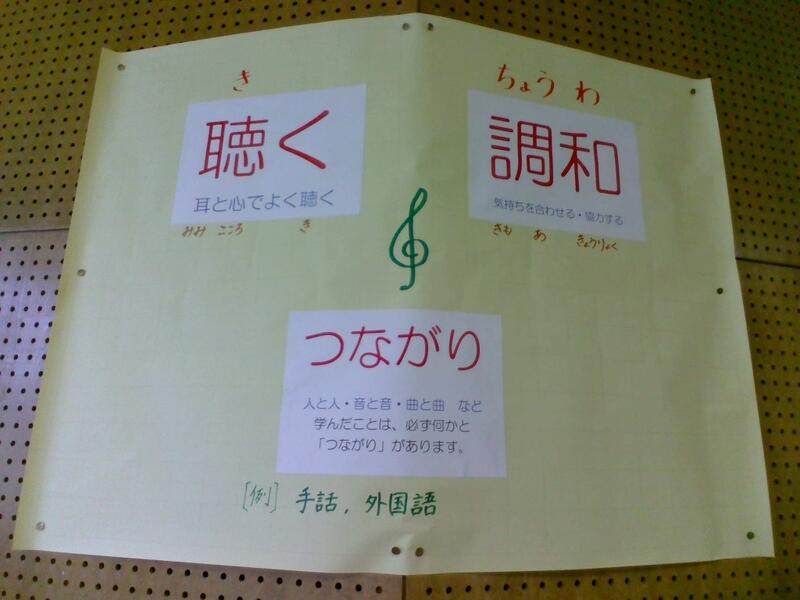 き
聴く
耳と心でよく聴く
みみ こころ き
ちょうわ
調和
気持ちを合わせる・協力する
きも あ きょうりょく
つながり
人と人・音と音・曲と曲 など
学んだことは、必ず何かと
「つながり」があります。
[例] 手話, 外国語